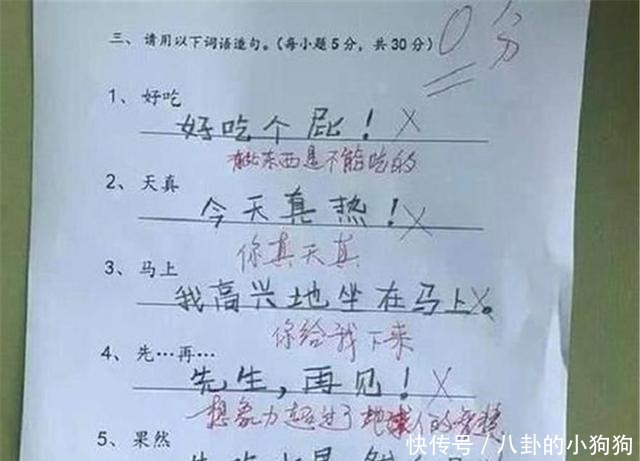 三、请用以下词语造句。(每小题5分，共30分)
0分
1、好吃
好吃个屁！
有些东西是不能吃的
2、天真
今天真热！
你真天真
3、马上
我高兴地坐在马上。
你给我下来
4、先…再…
先生，再见！
想象力超过了地球人的
5、果然
快传号 / 八卦的小狗狗